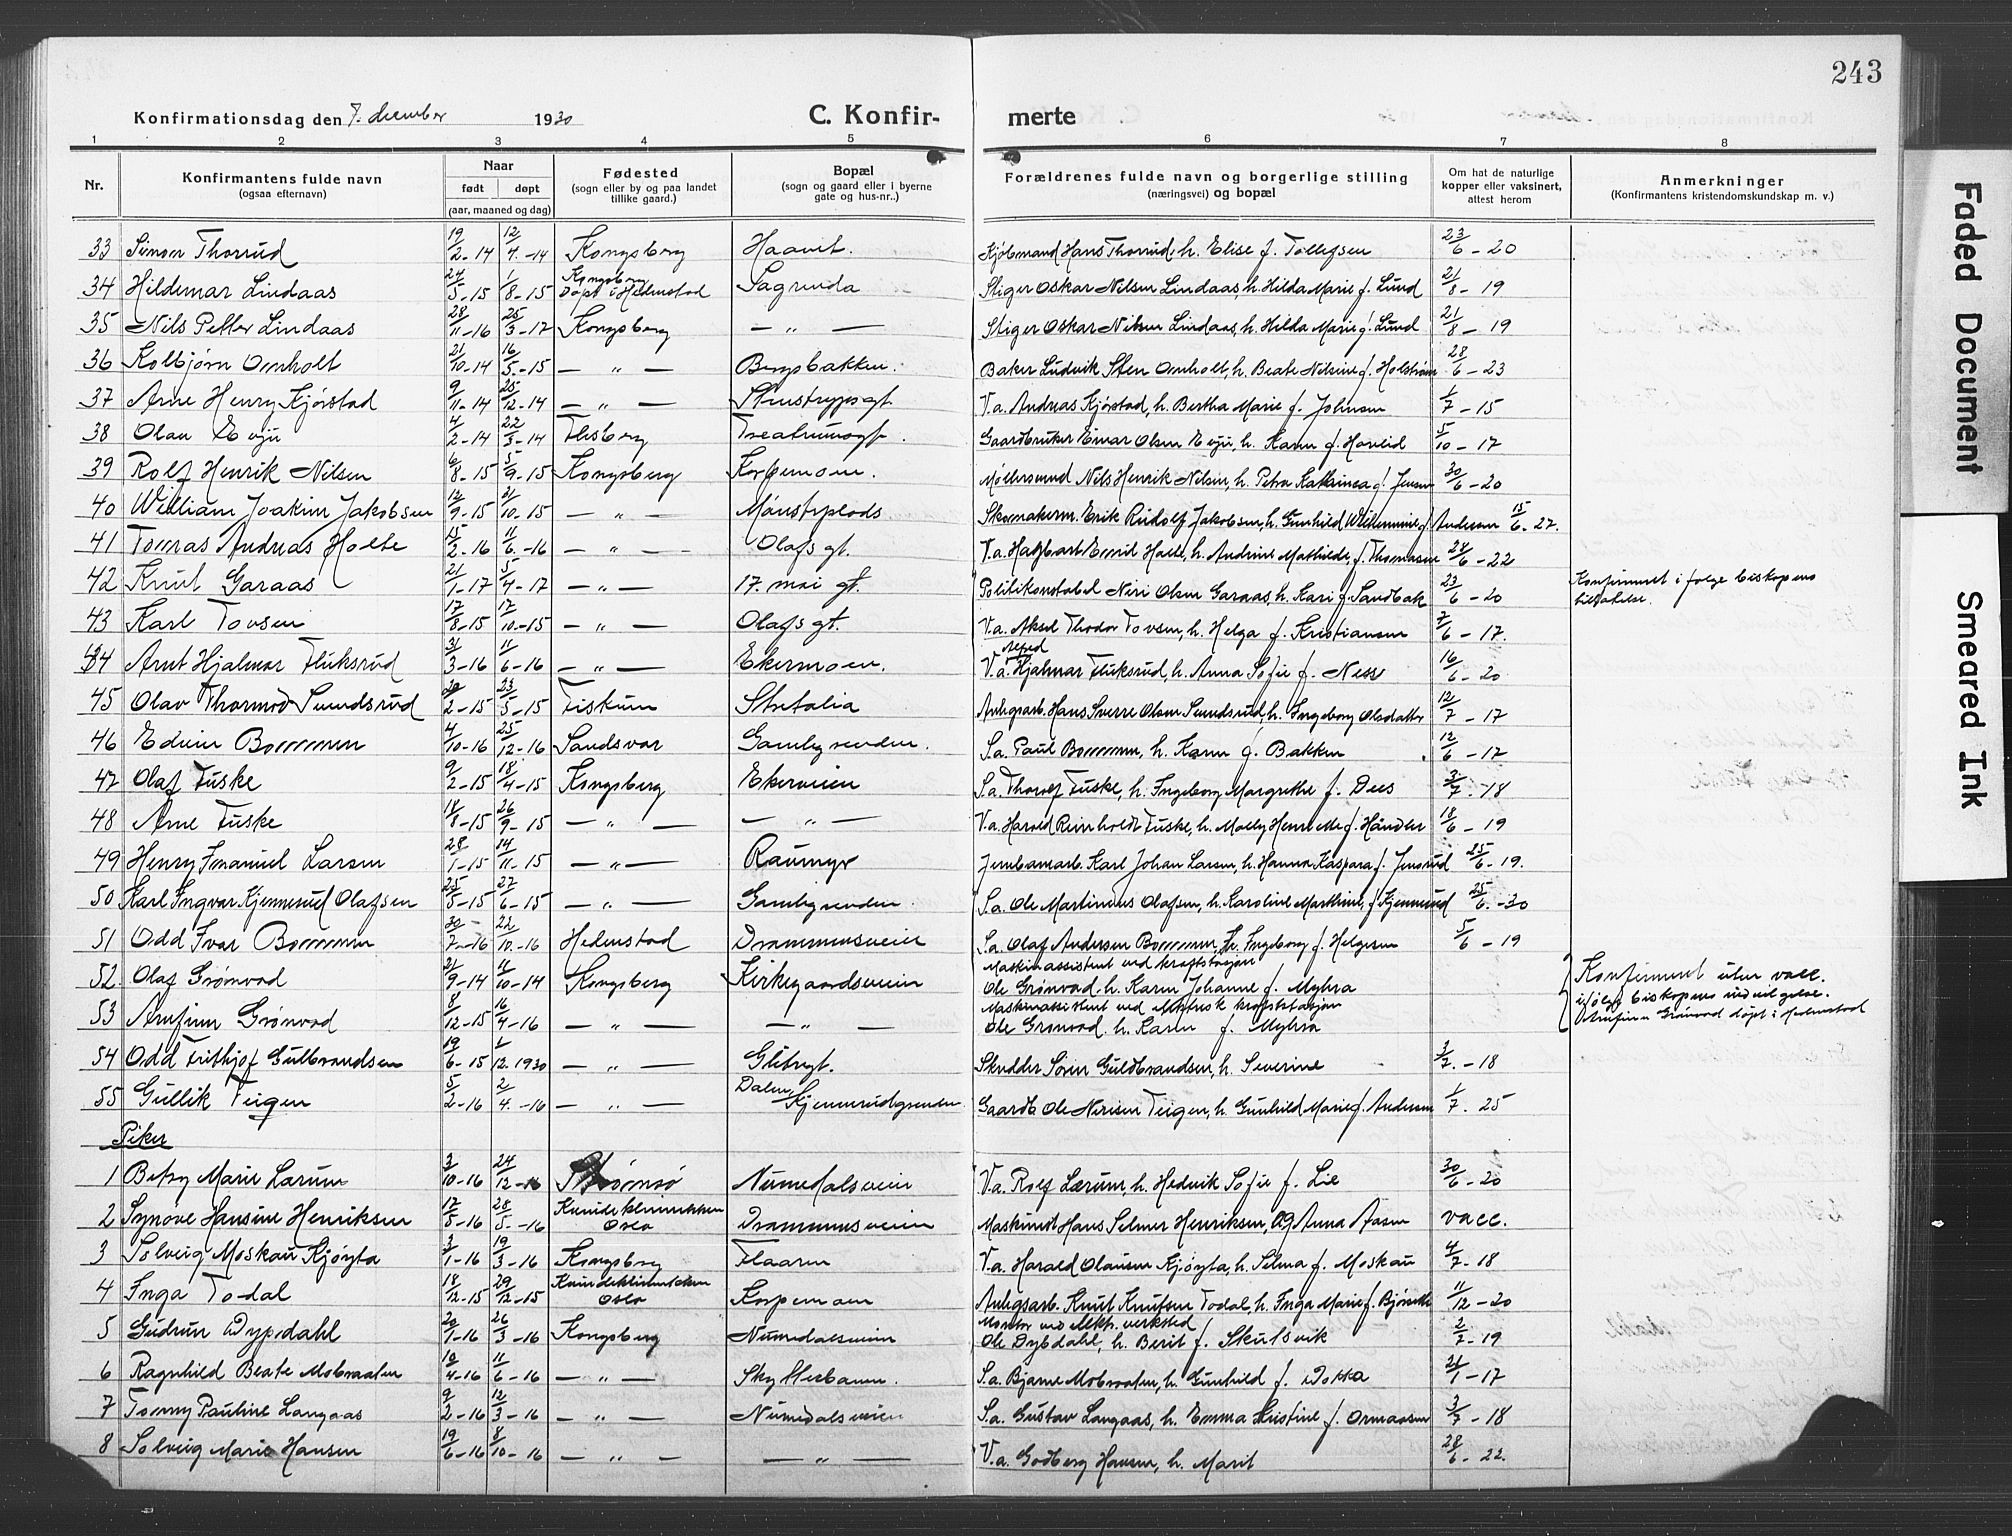 243
Konfirmationsdag den 7. desember 1930 C. Konfir- merte
1 2 3 4 5 6 7 8
Nr. Konfirmantens fulde navn (ogsaa efternavn) Naar født døpt (aar, maaned og dag) Fødested (sogn eller by og paa landet tillike gaard.) Bopæl (sogn og gaard eller i byerne gate og hus-nr..) Forældrenes fulde navn og borgerlige stilling (næringsvei) og bopæl Om hat de naturlige kopper eller vaksinert, attest herom Anmerkninger (Konfirmantens kristendomskundskap m. v.)
33 Simon Thorrud 19/2-14 12/4-14 Kongsberg Haavet. Kjøbmand Hans Thorrud, h. Elise f. Tollefsen 23/6-20
34 Hildemar Lindaas 24/5-15 1/8-15 Kongsberg Døpt i Hedenstad Sagrenda Stiger Oskar Nilsen Lindaas, h. Hilda Marie f. Lund 21/8-19
35 Nils Petter Lindaas 28/11-16 25/3-17 Kongsberg — " — Stiger Oskar Nilsen Lindaas, h. Hilda Marie f. Lund 21/8-19
36 Kolbjørn Omholt 21/10-14 16/5-15 — " — Bergsbakken. Baker Ludvik Sten Omholt, h. Beate Nilsine f. Holstrøm 28/6-23
37 Arne Henry Kjørstad 9/11-14 25/12-14 — " — Stenstrupsgt. V.a. Andreas Kjørstad, h. Bertha Marie f. Johnsen 1/7-15
38 Olav Evju 4/2-14 22/3-14 Flesberg Teatrumsgt. Gaardbruker Einar Olsen Evju, h. Karen f. Havleid 5/10-17
39 Rolf Henrik Nilsen 6/8-15 5/9-15 Kongsberg Korpemoen. Møllersvend Nils Henrik Nilsen, h. Petra Katrinea f. Jensen 30/6-20
40 William Joakim Jakobsen 12/9-15 31/10-15 — " — Mønstrplads Skomakerm. Erik Rudolf Jakobsen, h. Gunhild Willemine f. Andersen 15/6-27.
41 Tomas Andreas Holte 15/2-16 11/6-16 — " — Olafs gt. V.a. Hagbart Emil Holte, h. Andrine Mathilde, f. Thomassen 24/6-22
42 Knut Garaas 21/1-17 5/4-17 — " — 17. mai gt. Politikonstabel Niri Olsen Garaas, h. Kari f. Sandbæk 23/6-20 Konfirmeret i følge biskopens tillatelse.
43 Karl Tovsen 17/8-15 17/10-15 — " — Olafs gt. V.a. Aksel Thodor Tovsen, h. Helga f. Kristiansen 7/6-17.
44 Arnt Hjalmar Fluksrud 31/3-16 11/6-16 — " — Ekermoen. V.a. Hjalmar Fluksrud, h. Anna Sofie f. Ness 16/6-20
45 Olav Thormod Sundsrud 20/2-15 23/5-15 Fiskum Stretalia Anlegsarb. Hans Sverre Olsen Sundsrud, h. Ingeborg Olsdatter 12/7-17
46 Edvin Bommen 4/10-16 25/12-16 Sandsvær Gamlegrenden. S.a. Paul Bommen, h. Karen f. Bakken 12/6-17
47 Olaf Fuske 9/2-15 18/4-15 Kongsberg Ekerveien S.a. Thorolf Fuske, h. Ingeborg Margrethe f. Dees 3/7-18
48 Arne Fuske 18/8-15 26/9-15 — " — — " — V.a. Harald Reinholdt Fuske, h. Molly Henriette f. Händler 18/6-19
49 Henry Emanuel Larsen 28/1-15 14/11-15 — " — Raumyr Jernbanearb. Karl Johan Larsen, h. Hanna Kaspara f. Jensrud 25/6-19.
50 Karl Ingvar Kjennerud Olafsen 25/5-15 27/6-15 — " — Gamlegrenden. S.a. Ole Martinius Olafsen, h. Karoline Martine, f. Kjennerud 25/6-30
51 Odd Ivar Bommen 30/7-16 22/10-16 Hedenstad Drammensveien S.a. Olaf Andersen Bommen, h. Ingeborg f. Helgesen 5/6-19
52. Olaf Grønvod 21/9-14 11/10-14 Kongsberg Kirkegaardsveien Maskinassistent ved kraftstasjon Ole Grønvad, h. Karen Johanne f. Myhra Konfirmeret uten vacc. ifølge biskopens indvilgelse.
53 Arnfinn Grønvod 8/12-15 16/4-16 — " — — " — Maskinassistent ved kraftstasjon Ole Grønvod h. Karen f. Myhra Arnfinn Grønvod døpt i Hedenstad
54 Odd Frithjof Gulbrandsen 19/6-15 1/12.1930 — " — Glitregt. Skredder Sören Guldbrandsen, h. Severine 3/7-18
55 Gullik Teigen 5/2-16 2/4.-16 — " — Dalen Kjennerudgrenden Gaardb. Ole Nirisen Teigen, h. Gunhild Marie f. Andersen 1/7.25
Piker
1 Betsy Marie Lærum 3/10-16 24/12-16 Strømsø Numedalsveien V.a. Rolf Lærum, h. Hedvik Sofie f. Lie 30/6-20
2 Synøve Hansine Henriksen 17/5-16 28/5-16 Kvindeklinikken Oslo Drammensveien Maskinist Hans Selmer Henriksen, og Anna Aasen vacc.
3 Solveig Moskau Kjøyta 3/1-16 19/3-16 Kongsberg Flaaren V.a. Harald Olausen Kjøyta, h. Selma f. Moskau 4/7-18
4 Inga Todal 18/12-15 29/12-15 Kvindeklinikken Oslo Korpemoen Anlegsarb. Knut Knutsen Todal, h. Inga Marie f. Bjørseth 11/12-20
5 Gudrun Dypdahl 20/1-16 26/3-16 Kongsberg Numedalsveien Montør ved elektr. verksted Ole Dybdahl, h. Berit f. Skulsvik 2/7-19
6 Ragnhild Beate Mobraaten 10/4-16 11/6-16 — " — Skytterbanen. S.a. Bjarne Mobraaten, h. Gunhild f. Dokka 21/1-17
7 Tommy Pauline Langaas 9/2-16 12/3-16 — " — Numedalsveien S.a. Gustav Langaas, h. Emma Kristine f. Ormaasen 3/7-18
8 Solveig Marie Hansen 19/6-16 8/10-16 — " — — " — V.a. Godberg Hansen, h. Marit 28/6-22.
Faded Document
Smeared Ink